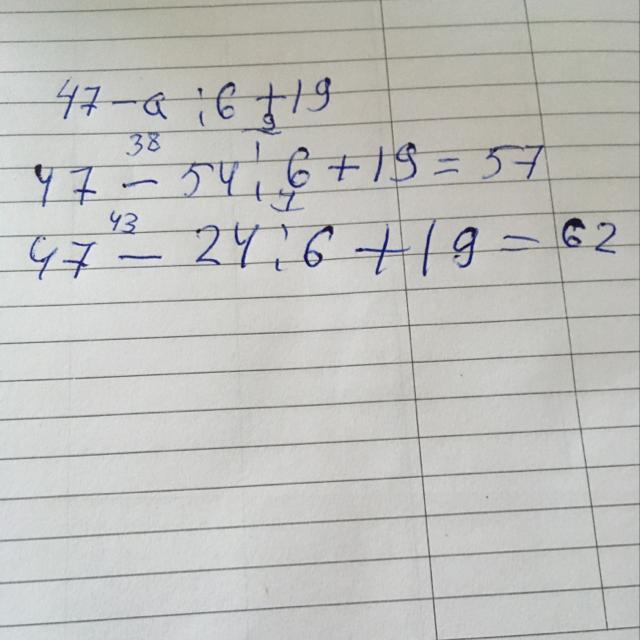 47 - a : 6 + 19
38 9
47 - 54 : 6 + 19 = 57
43
47 - 24 : 6 + 19 = 62